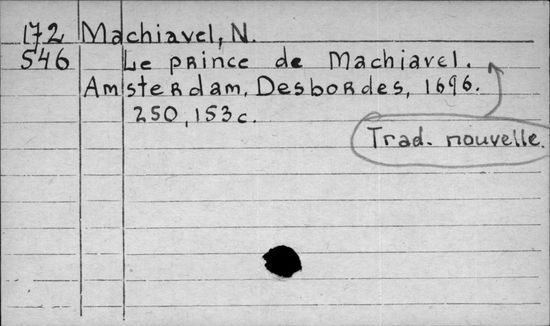 172 Machiavel, N.
546 Le prince de Machiavel.
Amsterdam, Desbordes, 1696.
250, 153c.
Trad. nouvelle.